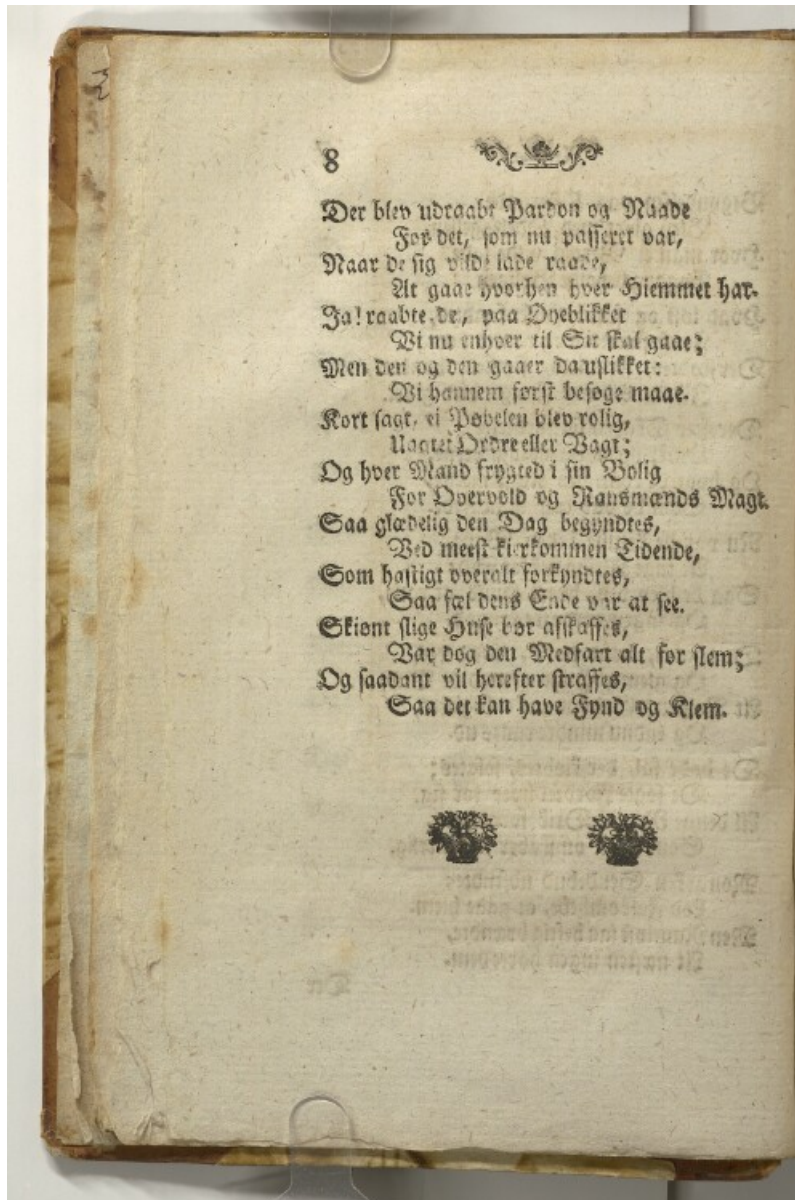 8
Der blev udraabt Pardon og Naade
For det, som nu passeret var,
Naar de sig vilde lade raade,
At gaae hvorhen hver Hiemmet har.
Ja! raabte de, paa Øyeblikket
Vi nu enhver til Sit skal gaae;
Men den og den gaaer da uslikket:
Vi hannem først besøge maae.
Kort sagt, ei Pøbelen blev rolig,
Uagtet Ordre eller Vagt;
Og hver Mand frygted i sin Bolig
For Overvold og Ransmænds Magt.
Saa glædelig den Dag begyndtes,
Ved meest kierkommen Tidende,
Som hastigt overalt forkyndtes,
Saa fæl dens Ende var at see.
Skiønt slige Huse bør afskaffes,
Var dog den Medfart alt for slem;
Og saadant vil herefter straffes,
Saa det kan have Fynd og Klem.